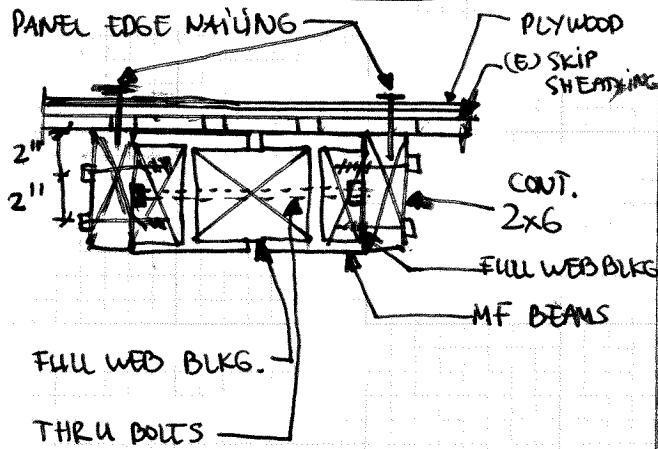 PANEL EDGE NAILING
PLYWOOD
(E) SKIP
SHEATHING
2"
2"
CONT.
2x6
FULL WEB BLKG
MF BEAMS
FULL WEB BLKG.
THRU BOLTS